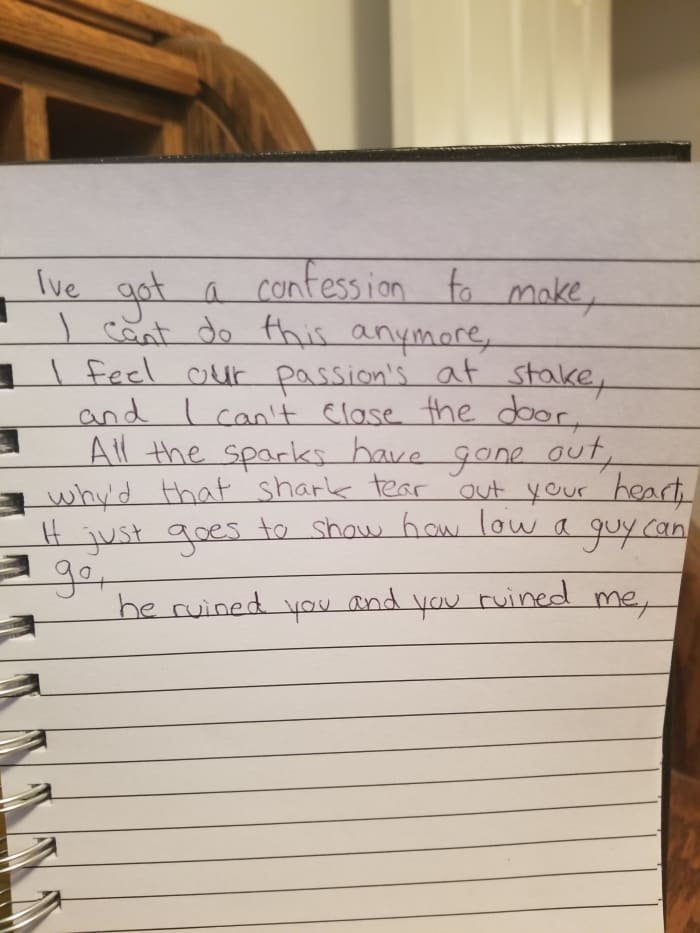 Ive got a confession to make,
I can't do this anymore,
I feel our passion's at stake,
and I can't close the door,
All the sparks have gone out,
why'd that shark tear out your heart,
It just goes to show how low a guy can
go,
he ruined you and you ruined me,